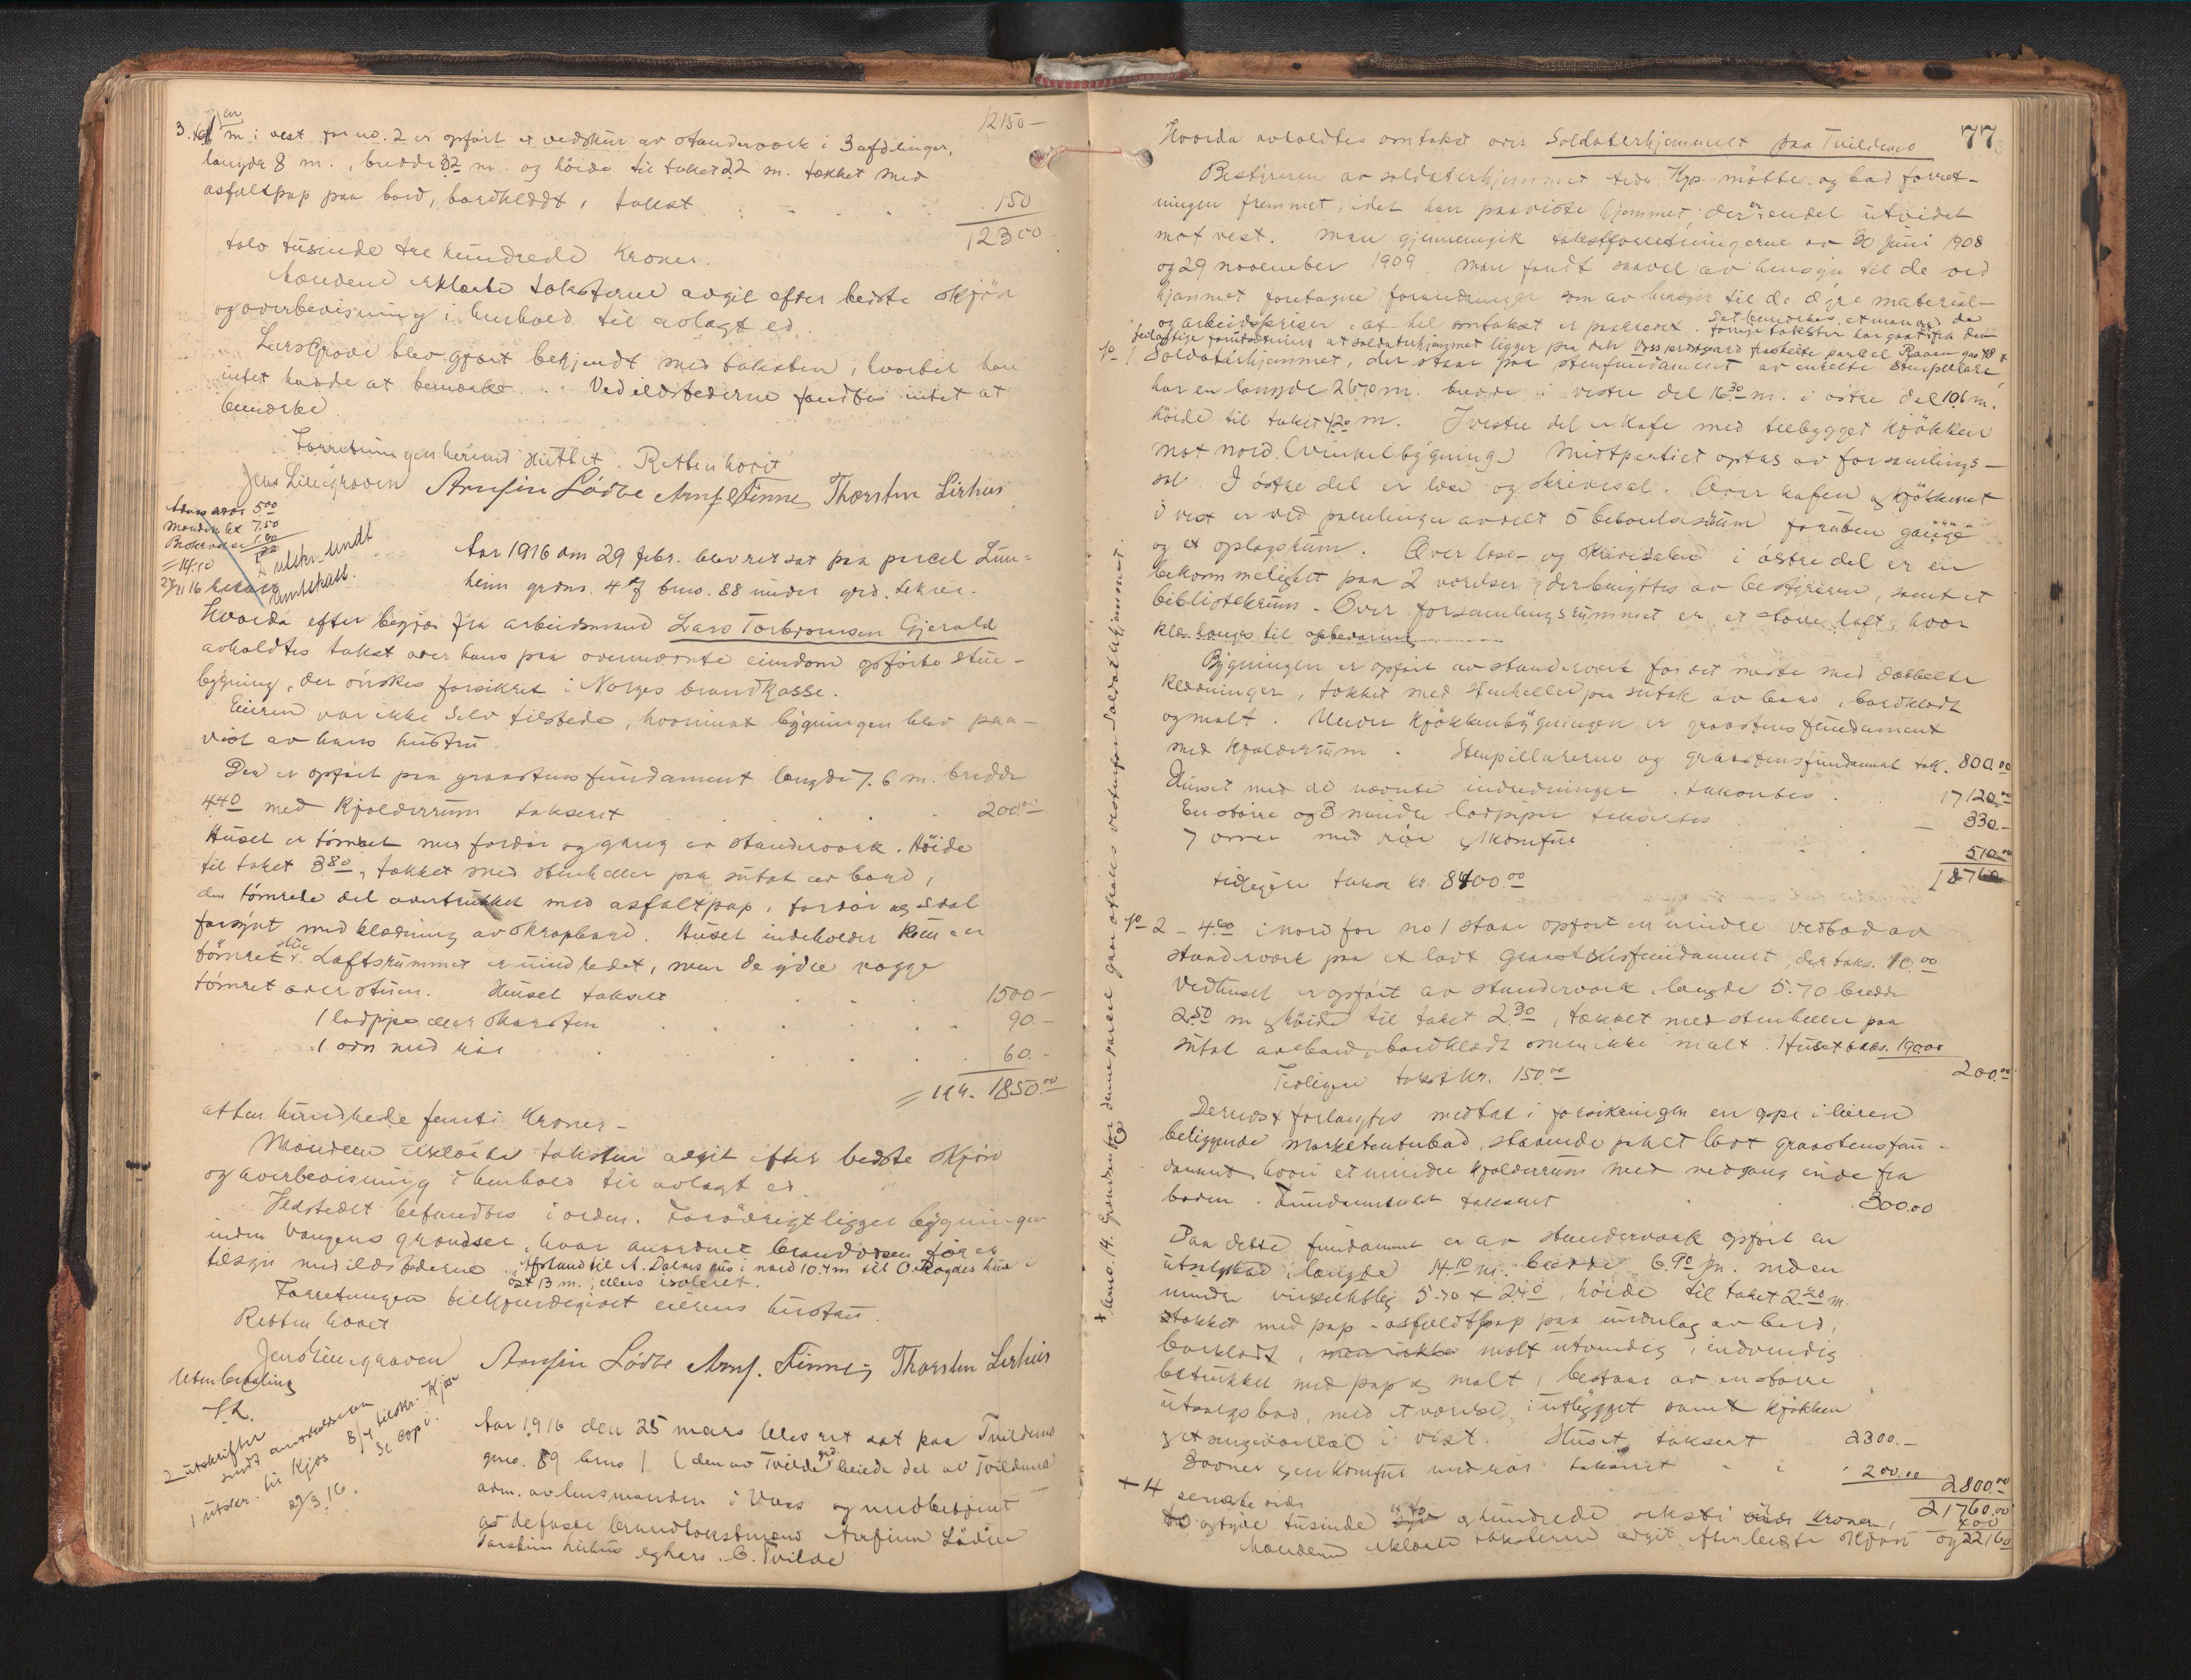 12150 –
3. m. i vest for no. 2 er opført et vedskur av standerværk i 3 afdelinger,
længde 8 m., bredde 32 m. og höide til taket 22 m. tækket med
asfaltpap paa bord, bordklædt, takst 150
12300
tolv tusinde tre hundrede Kroner.
Mændene erklærte taksterne avgit efter bedste skjön
og overbevisning i henhold til avlagt ed.
Lars Grove blev gjort bekjendt med taksten, hvortil han
intet havde at bemærke. Ved ildstederne fandtes intet at
bemærke.
Forretningen hermed sluttet. Retten hævet
Jens Lillegraven Arnfin Lödve Arnf. Finne Thorstein Lirhus
5.00
Mændene 7.50
utskr. sendt
Aar 1916 den 29 febr. blev ret sat paa parcel Lün-
heim grdnr. 48 brno. 88 under grd. Lekve.
Hvorda efter begjær fra arbeidsmand Lars Torbjörnsen Gjerald
avholdtes takst over hans paa ovennævnte eiendom opförte stue-
bygning, der önskes forsikret i Norges brandkasse.
Eieren var ikke selv tilstede, hvorimot bygningen blev paa-
vist av hans hustru.
Den er opfört paa graastens fundament længde 7.6 m. bredde
4.40 med Kjælderrum takseret 200.00
Huset er tömret med fordör og gang av standerværk. Höide
til taket 3.80, tækket med stenheller paa sutak av bord,
den tömrede del overtrukket med asfaltpap, fordör og sval
forsynt med klædning av skrapbord. Huset indeholder kun en
tömret stue. Loftsrummet er uindredet, men de ydre vægge
tömret over stuen. Huset takseret 1500 –
1 ladpipe eller skorsten 90. –
1 ovn med rör 60. –
= tils. 1850.00
atten hundrede femti Kroner –
Mændene erklærte taksten avgit efter bedste skjön
og overbevisning i henhold til avlagt ed.
Ildstedet befandtes i orden. Forövrigt ligger bygningen
inden Vangens grændser, hvor anordnet brandvæsen förer
tilsyn med ildstederne. Afstand til A. Dalens hus i nord 10.4 m til O. Rogdes hus i
öst 13 m., ellers isoleret.
Forretningen tilkjendegivet eierens hustru.
Retten hævet
Jens Lillegraven Arnfin Lödve Arnf. Finne Thorstein Lirhus
Uten betaling
2 utskrifter
sendt
1 utskr. til Kjos 8/4
29/3.16.
Aar 1916 den 25 mars blev ret sat paa Tvildemo
gno. 89 brno 1 (den av Tvilde grd. eiede del av Tvildemo)
adm. av lensmanden i Voss og med betjent
de faste brandtakstmænd Arnfinn Lödve
Torstein Lirhus og hars. G. Tvilde
77
Hvorda avholdtes omtakst over Soldaterhjemmet paa Tvildemo
Bestyreren av soldaterhjemmet Fedr. Kjos mötte og bad forret-
ningen fremmet, idet han paaviste hjemmet, der er endel utvidet
mot vest. Man gjennemgik takstforretningerne av 30 juni 1908
og 29 november 1909. Man fandt saavel av hensyn til de ved
hjemmet foretagne forandringer som av hensyn til de dyre material-
og arbeidspriser, at hel omtakst er paakrævet. Det bemerkes, at man ved de
forrige takster har gaat ut fra den
feilagtige forutsætning at soldaterhjemmet ligger paa den Voss prestegaard fraskilte parcel Raaen gno 48 +
1. Soldaterhjemmet, der staar paa stenfundament av enkelte stenpillare,
har en længde 26.70 m. bredde i vestre del 16.30 m. i östre del 10.6 m.
höide til taket 4.20 m. I vestre del er Kafe med tilbygget kjökken
mot nord (vinkelbygning). Midtpartiet optas av forsamlings-
sal. I östre del er læse og skrivesal. Over kafeen og kjökkenet
i vest er ved paneling avdelt 5 beboelsesrum foruten gange
og et oplagsrum. Over læse- og skrivesalen i östre del er en
bekvemmelighet paa 2 værelser, der benyttes av bestyreren, samt et
bibliotekrum. Over forsamlingsrummet er et större loft, hvor
klær hænges til opbevaring
Bygningen er opfört av standerværk for det meste med dobbelte
klædninger, tækket med stenheller paa sutak av bord, bordklædt
og malt. Under kjökkenbygningen er graastensfundament
med kjælderrum. Stenpillarerne og graastensfundament tak. 800.00
Huset med de nævnte indredninger taksertes 17120.00
En större og 3 mindre ladpiper taksertes 330. –
7 ovner med rör og komfur 510.00
18760
tidligere takst kr. 8400.00
2 – 4.00 i nord for no 1 staar opfört en mindre vedbod av
standerværk paa et lavt graastensfundament, der taks. 10.00
Vedhuset er opfört av standerværk. længde 5.70 bredde
2.50 m og höide til taket 2.30, tækket med stenheller paa
sutak av bord, bordklædt men ikke malt. Huset taks. 190.00
Tidligere takst kr. 150.00 200.00
Dernæst forlangtes medtat i forsikringen en oppe i leiren
beliggende marketenterbod, staaende paa et lavt graastensfun-
dament, hvori et mindre kjælderrum med nedgang inde fra
boden. Fundamentet takseret 300.00
Paa dette fundament er av standerværk opfört en
utsalgsbod, længde 14.10 m. bredde 6.90 m. med en
mindre vinkelbyg 5.70 x 2.40, höide til taket 2.20 m.
tækket med pap – asfaldtpap paa underlag av bord,
bordklædt, men ikke malt utvendig, indvendig
betrukket med pap og malt, bestaar av en större
utsalgsbod, med et værelse i utbygget samt kjökken
og et i vest. Huset takseret 2300. –
2 ovner og en komfur med rör takseret 200.00 2800.00
+ 4 seneste side 21760.00
400
og tyve tusinde et hundrede seksti kroner,
Mændene erklærte taksterne avgit efter bedste skjön og 22160
+ bruno. 14. Grændsen for denne parcel gaar vestenfor Soldaterhjemmet.